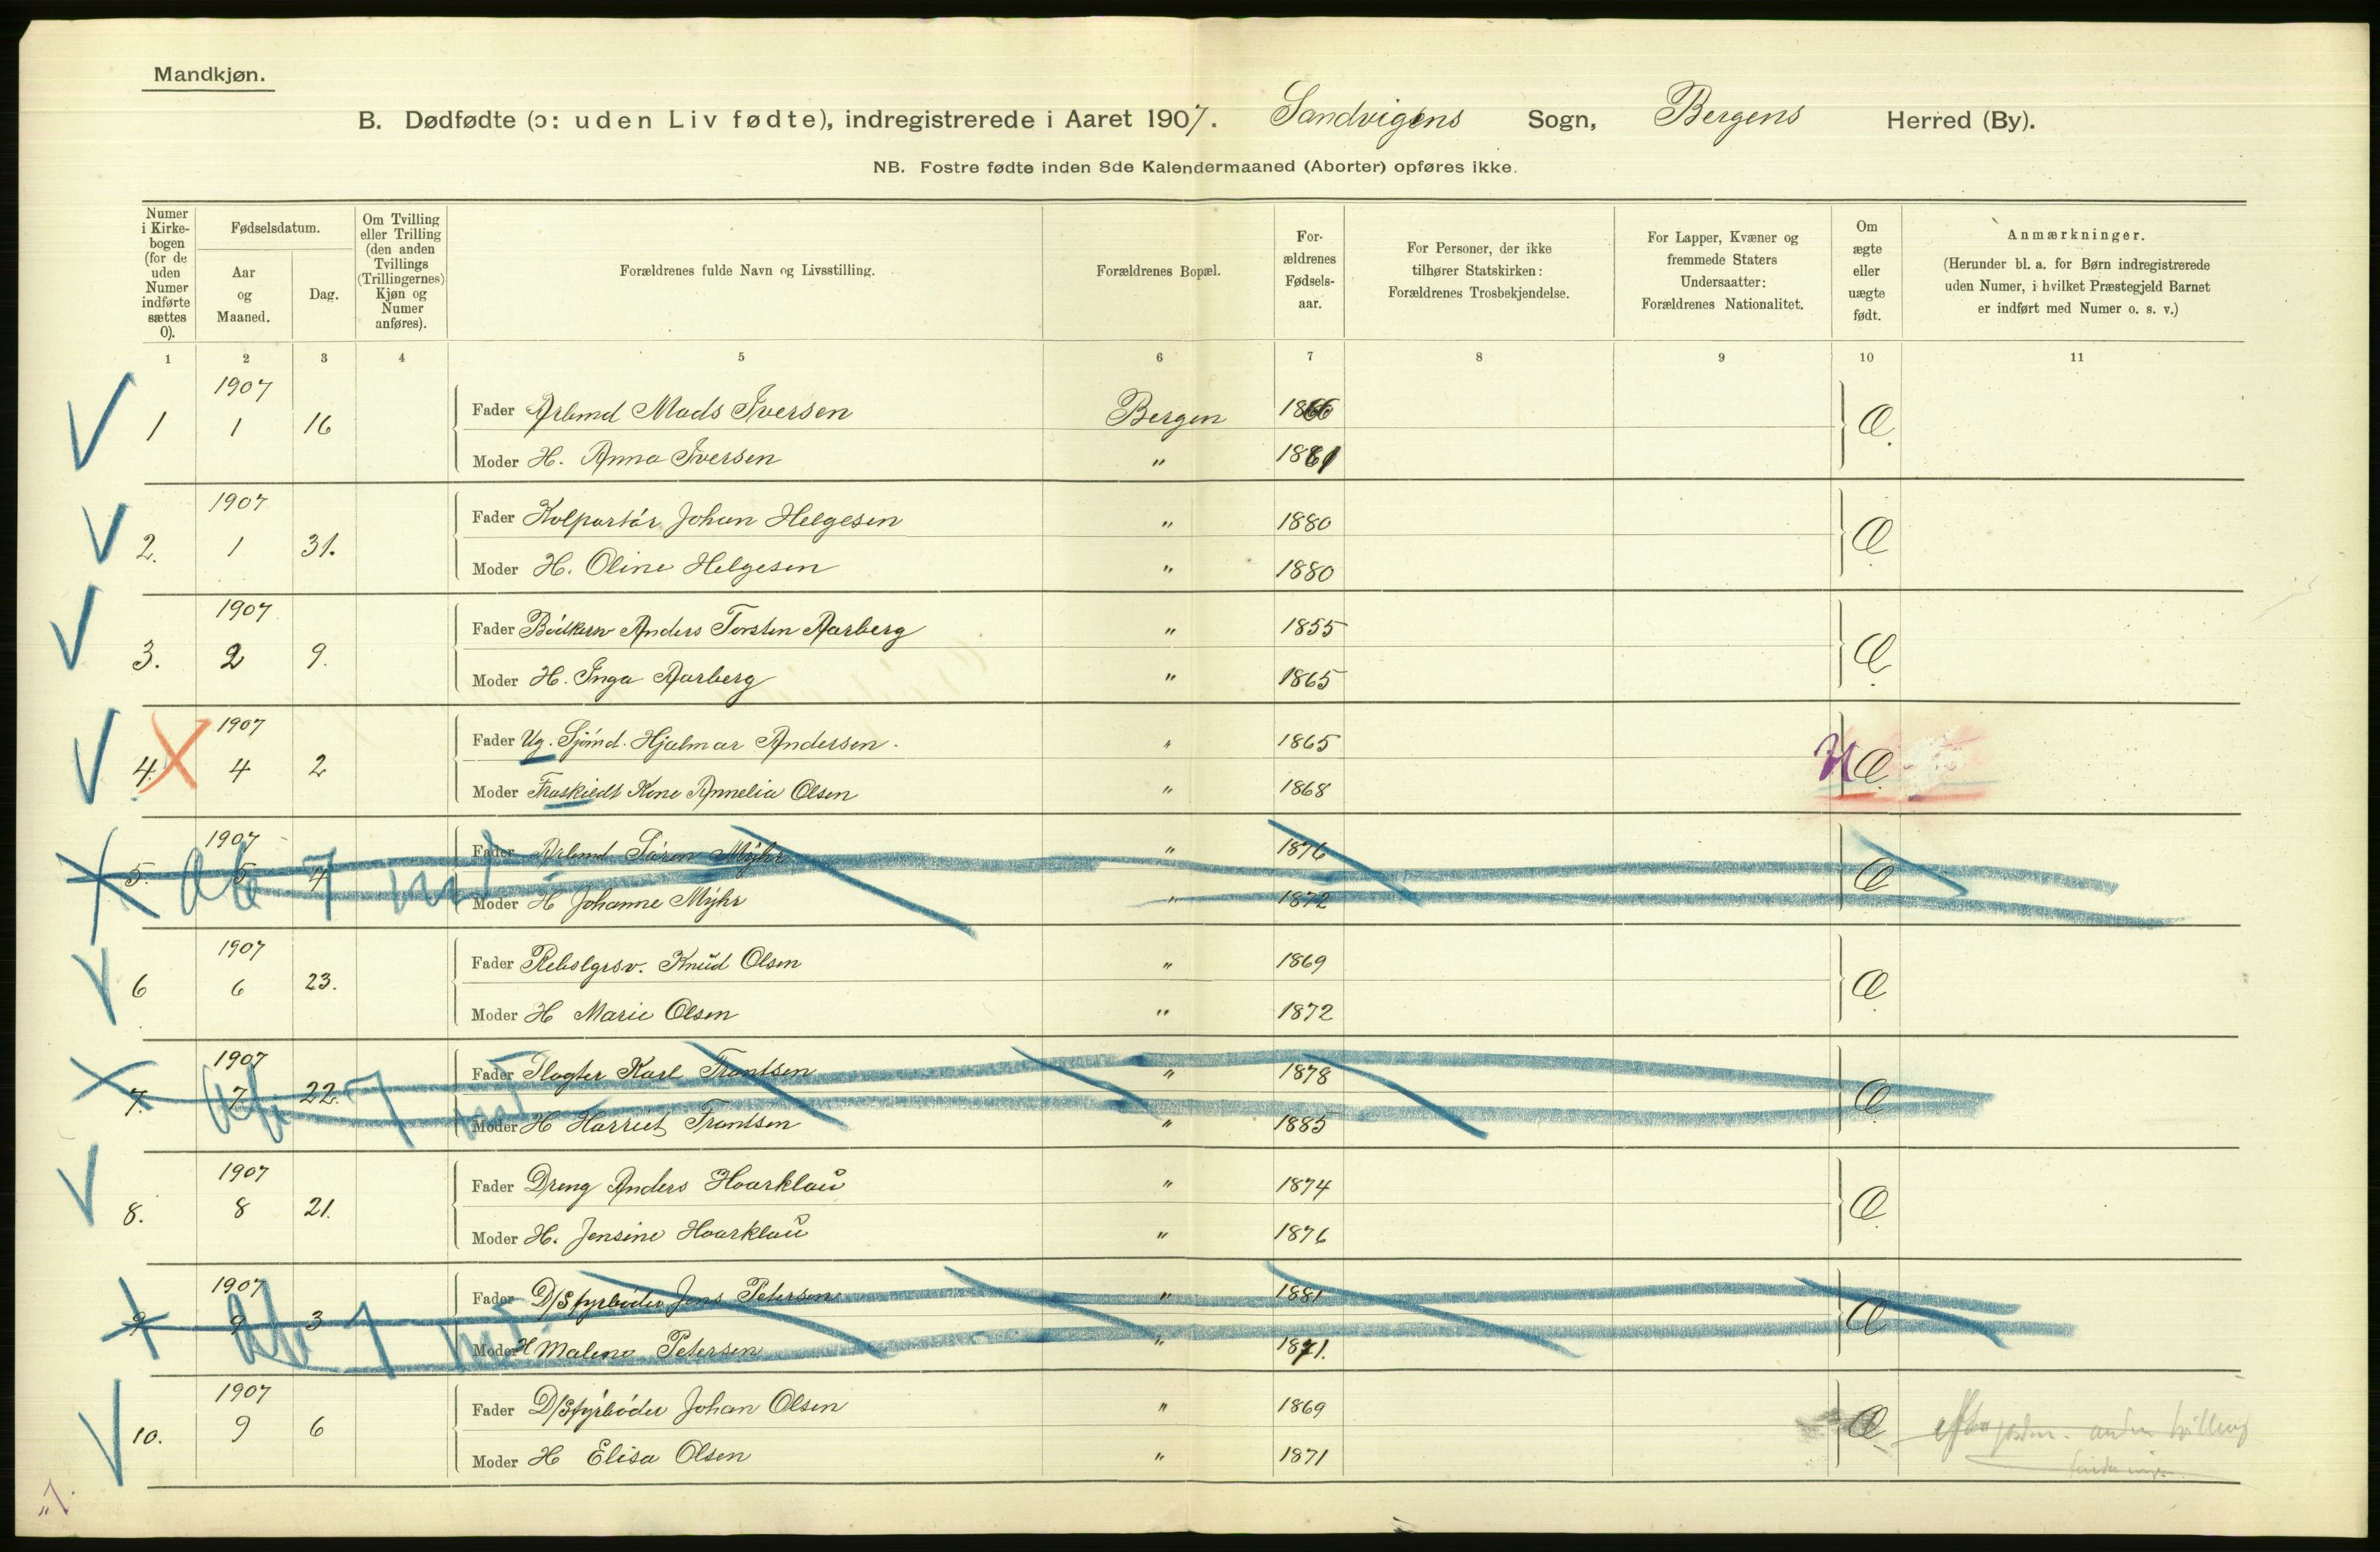 Mandkjøn.
B. Dødfødte (ɔ: uden Liv fødte), indregistrerede i Aaret 1907. Sandvigens Sogn, Bergens Herred (By).
NB. Fostre fødte inden 8de Kalendermaaned (Aborter) opføres ikke.
Numer i Kirke-bogen (for de uden Numer indførte sættes 0).
Fødselsdatum.
Aar og Maaned.
Dag.
Om Tvilling eller Trilling (den anden Tvillings (Trillingernes) Kjøn og Numer anføres).
Forældrenes fulde Navn og Livsstilling.
Forældrenes Bopæl.
For-ældrenes Fødsels-aar.
For Personer, der ikke tilhører Statskirken: Forældrenes Trosbekjendelse.
For Lapper, Kvæner og fremmede Staters Undersaatter: Forældrenes Nationalitet.
Om ægte eller uægte født.
Anmærkninger.
(Herunder bl. a. for Børn indregistrerede uden Numer, i hvilket Præstegjeld Barnet er indført med Numer o. s. v.)
1 2 3 4 5 6 7 8 9 10 11
1907
1 1 16 Fader Arbmd Mads Iversen Bergen 1866 Æ.
Moder H. Anna Iversen " 1881
1907
2. 1 31. Fader Kolportör Johan Helgesen " 1880 Æ
Moder H. Oline Helgesen " 1880
1907
3. 2 9. Fader Bödkersv Anders Torsten Aarberg " 1855 Æ
Moder H. Inga Aarberg " 1865
1907
4. 4 2 Fader Ug. Sjömd. Hjalmar Andersen. " 1865 U Æ
Moder Fraskiedt Kone Annelia Olsen " 1868
1907
5. 5 4 Fader Arbmd Sören Myhr " 1876 Æ
Moder H Johanne Myhr " 1872
1907
6 6 23. Fader Rebslgrsv. Knud Olsen " 1869 Æ
Moder H Marie Olsen " 1872
1907
7. 7 22. Fader Slagter Karl Frantsen " 1878 Æ
Moder H Harriet Frantsen " 1885
1907
8. 8 21. Fader Dreng Anders Haarklau " 1874 Æ
Moder H. Jensine Haarklau " 1876
1907
9 9 3 Fader D/S fyrböder Jens Petersen " 1881 Æ
Moder H Malene Petersen " 1871.
1907
10. 9 6 Fader D/S fyrböder Johan Olsen " 1869 Æ
Moder H Elisa Olsen " 1871